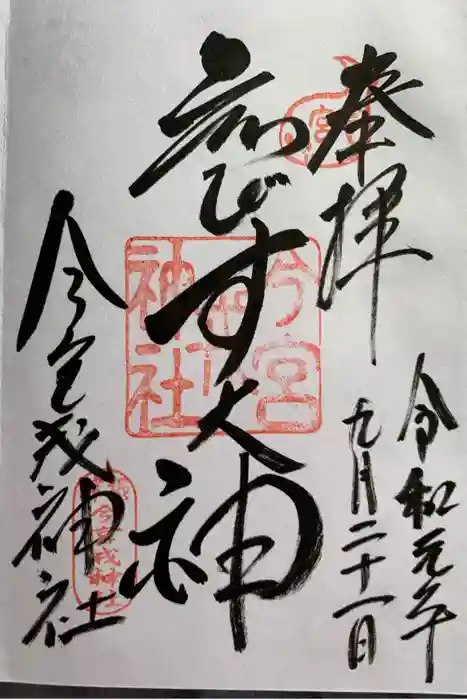 奉拝
令和元年
九月二十一日
ゑびす大神
今宮戎神社
今宮
戎
神社
宮
今宮戎神社